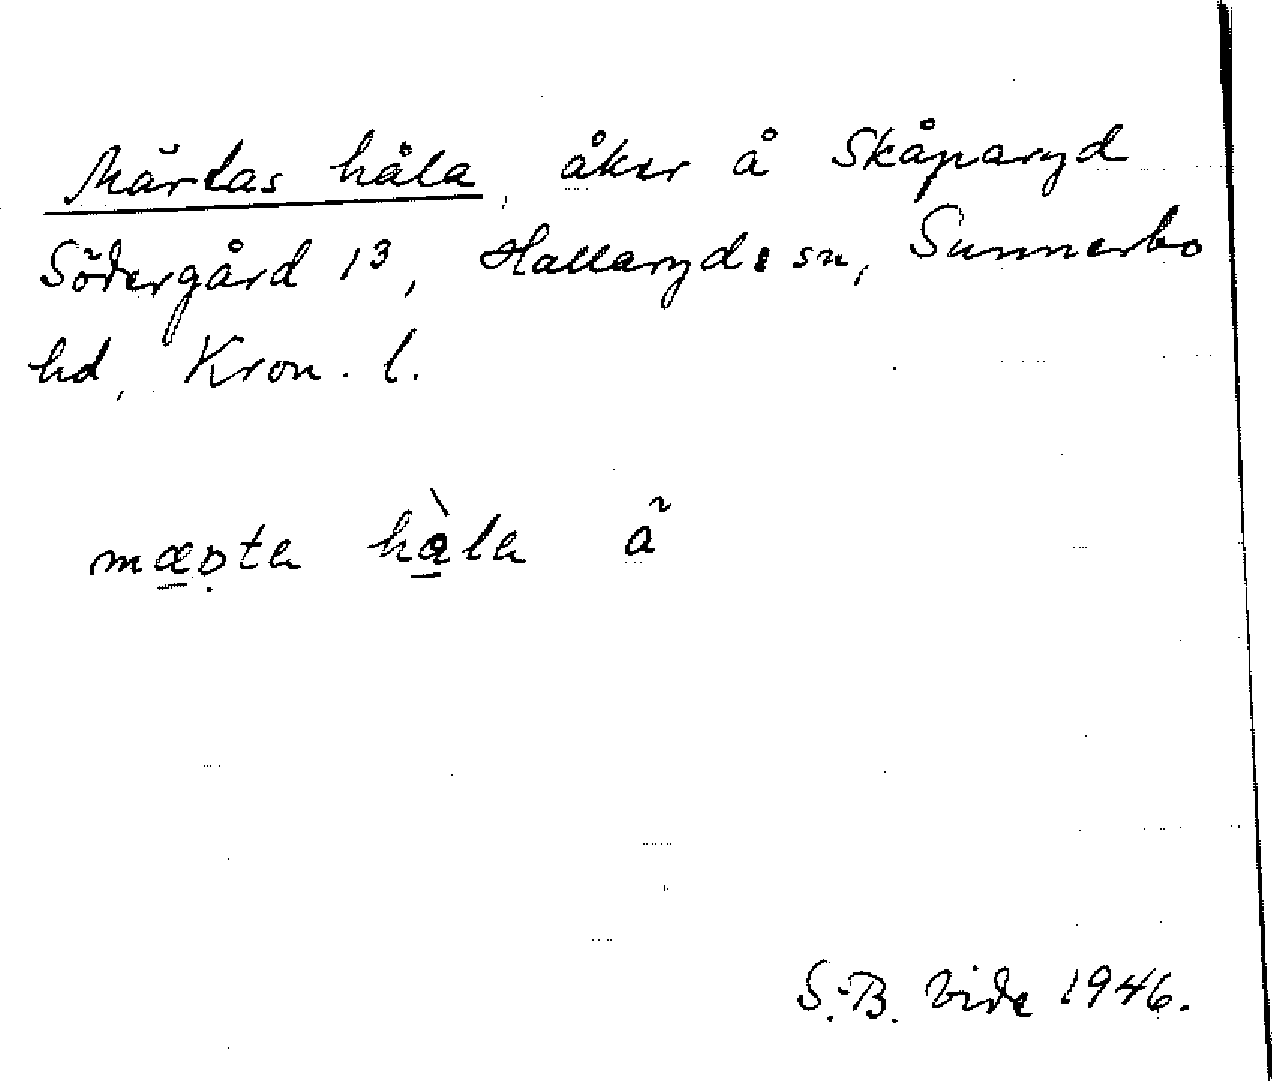 Märtas håla, åker å Skåparyd
Södergård 13, Hallaryds sn, Sunnerbo
hd, Kron. l.
S.-B. Vide 1946.